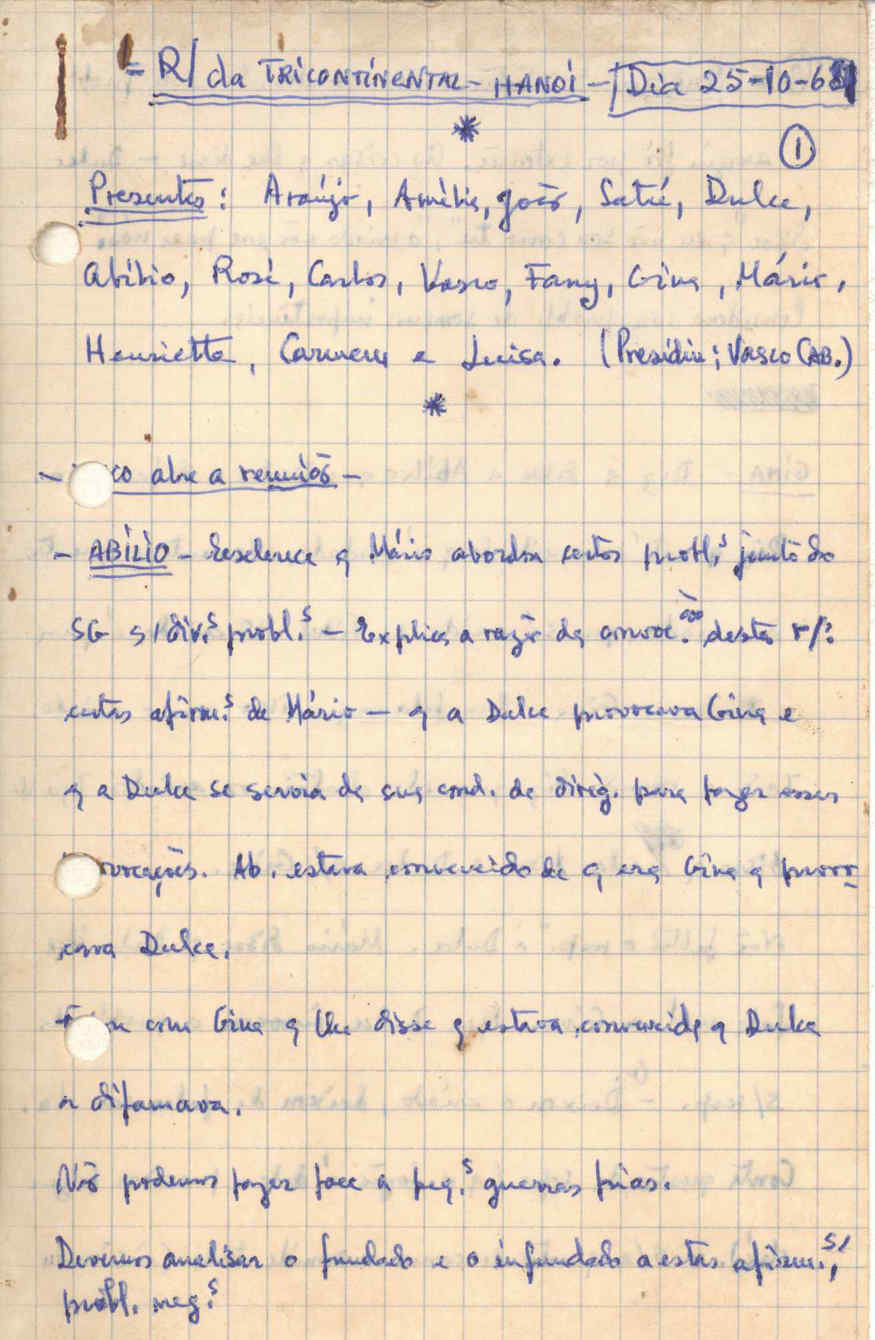 = R/ da TRICONTINENTAL - HANOI - Dia 25-10-68
①
Presentes: Araújo, Amélia, João, Satú, Dulce,
Abílio, Rosé, Carlos, Vasco, Fany, Gina, Mário,
Henriette, Carmem e Luisa. (Presidiu: Vasco (AB.)
co abre a reunião -
- ABÍLIO - Esclarece q Mário abordou certos probl.s junto do
SG s/ div.s probl.s - Explica a razão da convoc.ção desta r/:
certas afirm.s de Mário - q a Dulce provocava Gina e
q a Dulce se servia da sua cond. de dirig. para fazer essas
rovocações. Ab. estava convencido de q era Gina q provo-
cava Dulce.
com Gina q lhe disse q estava convencida q Dulce
a difamava.
Não podemos fazer face a peq.s guerras frias.
Devemos analisar o fundado e o infundado a estas afirm.s,
probl. neg.s